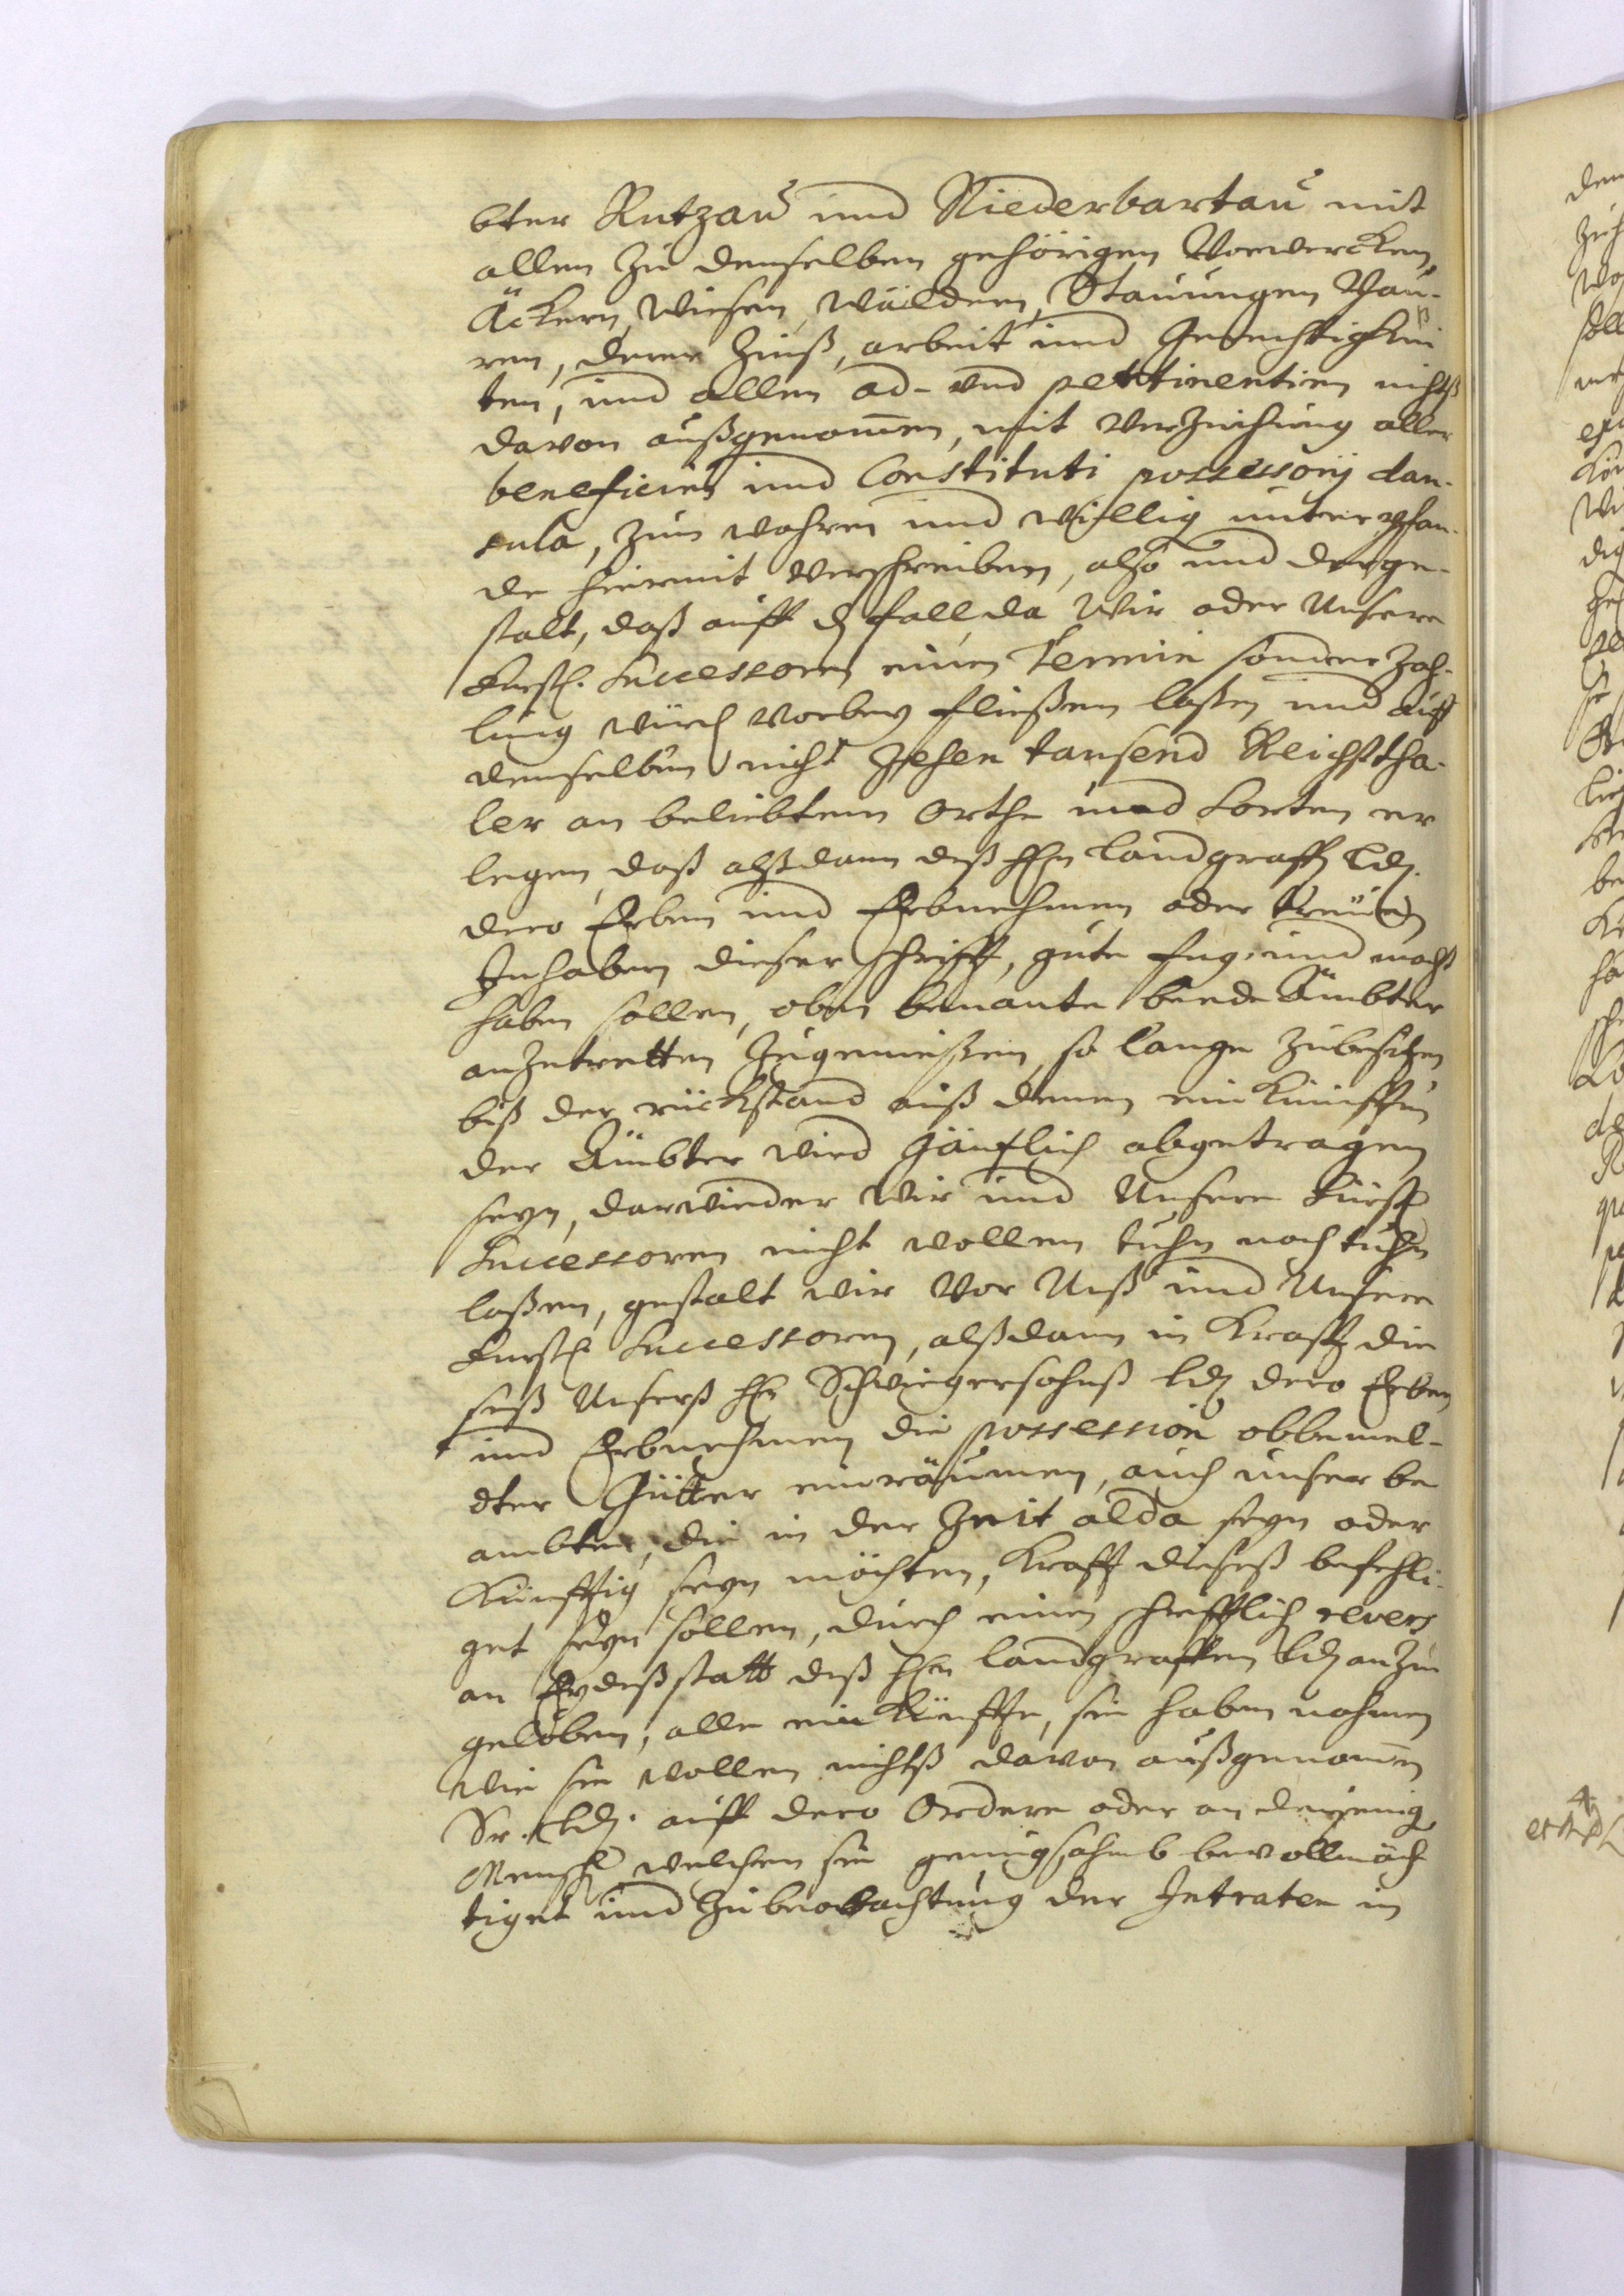 bter Rutzau und Niederbartau mit
allen zu denselben gehörigen Vorwercken,
Äckern, Wiesen, Wäldern, Stauungen Bau-
ren, derer Zinß, arbeit und Gerechtigkei
ten, und allen ad- und pertinentien nichtß
davon außgenom̄en, mit Verzeihung aller
beneficien und Constituti possessorij clau-
sula, zum wahren und willig unterpfan-
de hiermit verschreiben, also und derge-
stalt, daß auff den fall, da Wir oder Unsere
Fürstl. Successoren einen Termin sonder Zah-
lung würd vorbey fließen laßen und auff
denselben nicht Zehen tausend Reichßtha-
ler an beliebtem Orthe und Sorten er
legen, daß alßdann deß HEn Landgraffen Ldn.
dero Erben und Erbnehmen oder treuen
Inhabern dieser Schrifft, gute fug und macht
haben sollen, oben benante beede Ämbter
anzutretten Zugeniessen, so lange zubesitzen
biß der rückstand auß denen einkünfften
der Ämbter wird gäntzlich abgetragen
seyn, darwieder Wir und Unsere Fürstl
Successoren nicht wollen tuhn noch tuhn
laßen, gestalt wir vor Unß und Unsere
Fürstl. Successoren, alßdann in Krafft die
seß Unserß HEn Schwiegersohnß Ldn dero Erben
und Erbnehmen die possession obbemel-
dter Gütter einräumen, auch unser be
ambten, die in der Zeit alda seyn oder
Künfftig seyn möchten, Krafft dieseß befehli-
get seyn sollen, durch einen schrifftlich revers
an Eydeßstatt deß HEn Landgraffen Ldn anzu
geloben, alle einkünffte, sie haben nahmen
wie sie wollen nichtß davon außgenom̄en
Sr. Ldn. auff dero Ordere oder an denjenig
Mensch welchen sie genugsahmb bevollmäch
tiget und Zu beobachtung der Intraten in